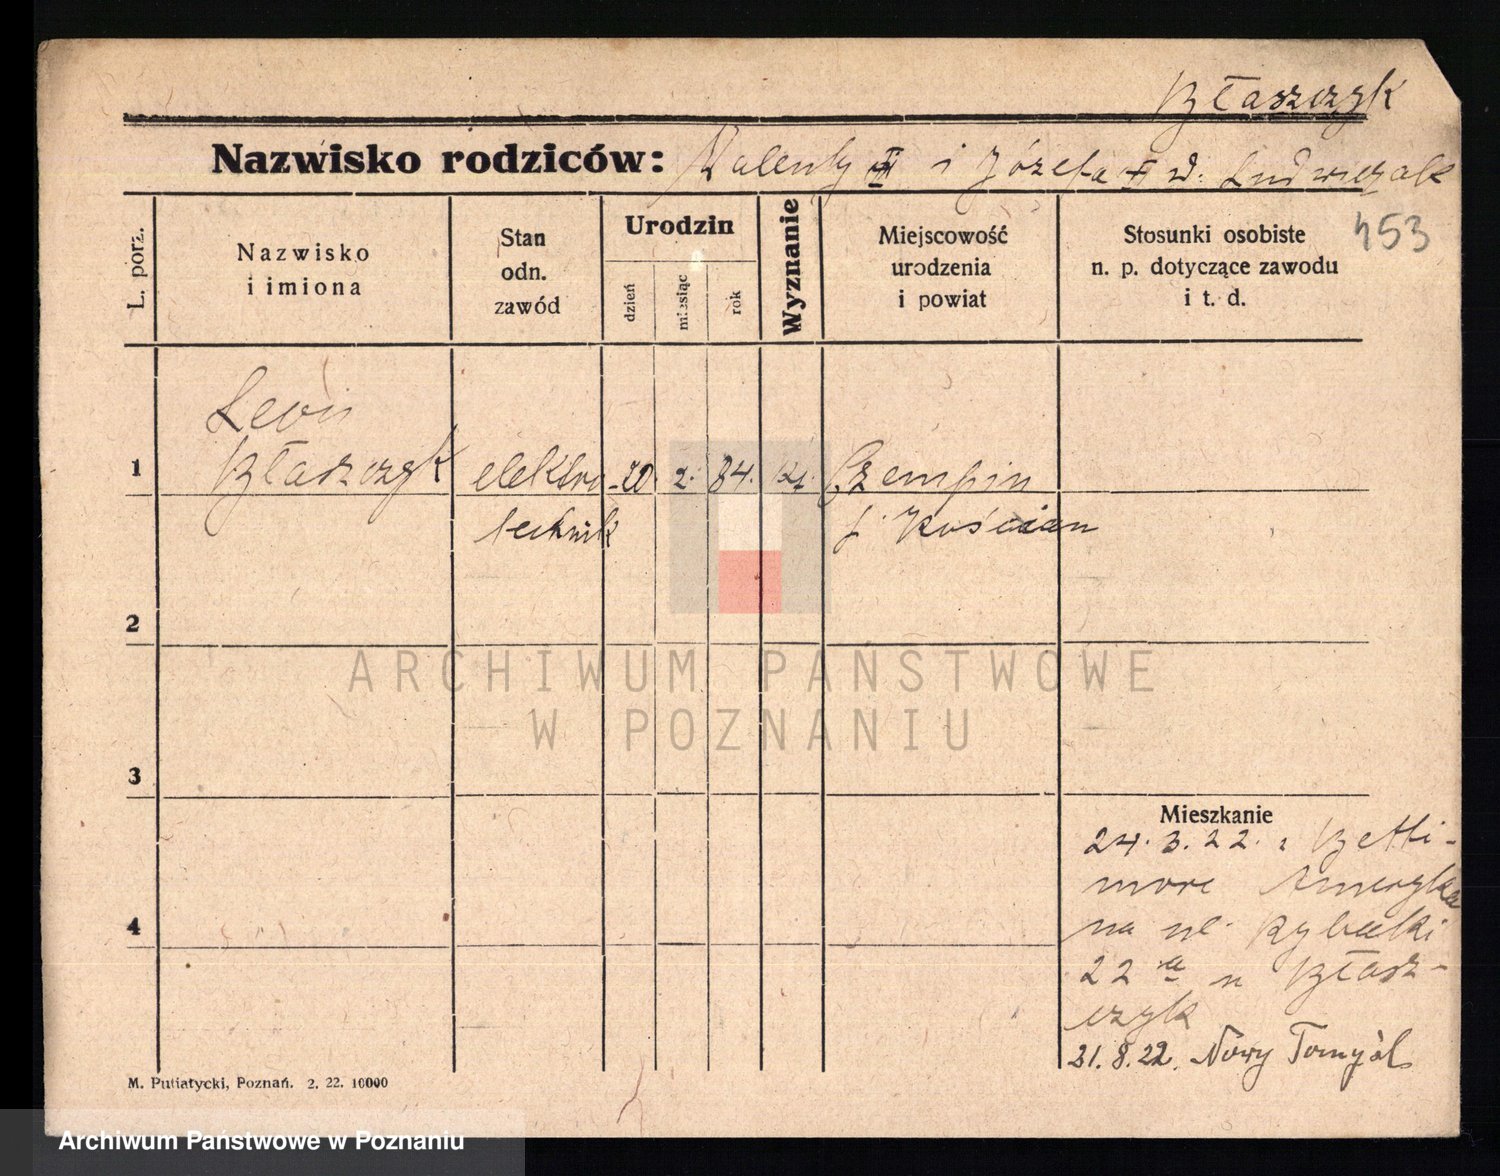 Błaszczyk
Nazwisko rodziców: Walenty i Józefa d. Ludwiczak
453
L. porz.
Nazwisko
i imiona
Stan
odn.
zawód
Urodzin
dzień
miesiąc
rok
Wyznanie
Miejscowość
urodzenia
i powiat
Stosunki osobiste
n. p. dotyczące zawodu
i t. d.
Leon
1 Błaszczyk elektro- 20. 2. 84. kt. Czempin
technik Kościan
2
3
4
ARCHIWUM PAŃSTWOWE
W POZNANIU
Mieszkanie
24. 3. 22. z Balti-
more Ameryka
na ul. Rybaki
22 a u Błasz-
czyk
31. 8. 22. Nowy Tomyśl
M. Putiatycki, Poznań. 2. 22. 10000
Archiwum Państwowe w Poznaniu